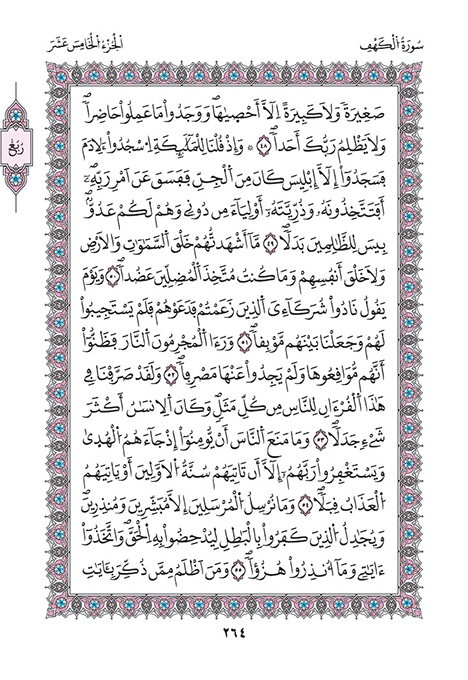 سُورَةُ الْكَهْفِ
الْجُزْءُ الْخَامِسَ عَشَرَ
صَغِيرَةً وَلَا كَبِيرَةً اِلَّآ أَحْصِيٰهَا وَوَجَدُوا مَا عَمِلُوا حَاضِراً
وَلَا يَظْلِمُ رَبُّكَ أَحَداً ٤٨ ۞ وَإِذْ قُلْنَا لِلْمَلَٰٓئِكَةِ اِ۟سْجُدُوا ءِلَادَمَ
فَسَجَدُوٓا إِلَّآ إِبْلِيسَ كَانَ مِنَ الْجِنِّ فَفَسَقَ عَنَ اَمْرِ رَبِّهِۦٓ
أَفَتَتَّخِذُونَهُۥ وَذُرِّيَّتَهُۥٓ أَوْلِيَآءَ مِن دُونِي وَهُمْ لَكُمْ عَدُوٌّ
بِيسَ لِلظَّٰلِمِينَ بَدَلاً ٤٩ مَّآ أَشْهَدتُّهُمْ خَلْقَ السَّمَٰوَٰتِ وَالَارْضِ
وَلَا خَلْقَ أَنفُسِهِمْ وَمَا كُنتُ مُتَّخِذَ الْمُضِلِّينَ عَضُداً ٥٠ وَيَوْمَ
يَقُولُ نَادُوا شُرَكَآءِيَ الَّذِينَ زَعَمْتُمْ فَدَعَوْهُمْ فَلَمْ يَسْتَجِيبُوا
لَهُمْ وَجَعَلْنَا بَيْنَهُم مَّوْبِقاً ٥١ وَرَءَا الْمُجْرِمُونَ النَّارَ فَظَنُّوٓا
أَنَّهُم مُّوَاقِعُوهَا وَلَمْ يَجِدُوا عَنْهَا مَصْرِفاً ٥٢ وَلَقَدْ صَرَّفْنَا فِي
هَٰذَا الْقُرْءَانِ لِلنَّاسِ مِن كُلِّ مَثَلٍ وَكَانَ الِانسَٰنُ أَكْثَرَ
شَےْءٍ جَدَلاً ٥٣ وَمَا مَنَعَ النَّاسَ أَن يُّومِنُوٓا إِذْ جَآءَهُمُ الْهُدَىٰ
وَيَسْتَغْفِرُوا رَبَّهُمُۥٓ إِلَّآ أَن تَاتِيَهُمْ سُنَّةُ الَاوَّلِينَ أَوْ يَاتِيَهُمُ
الْعَذَابُ قِبَلاً ٥٤ وَمَا نُرْسِلُ الْمُرْسَلِينَ إِلَّا مُبَشِّرِينَ وَمُنذِرِينَ
وَيُجَٰدِلُ الَّذِينَ كَفَرُوا بِالْبَٰطِلِ لِيُدْحِضُوا بِهِ الْحَقَّ وَاتَّخَذُوٓا
ءَايَٰتِے وَمَآ أُنذِرُوا هُزُؤاً ٥٥ وَمَنَ اَظْلَمُ مِمَّن ذُكِّرَ بِـَٔايَٰتِ
رُبْعٌ
٢٦٤